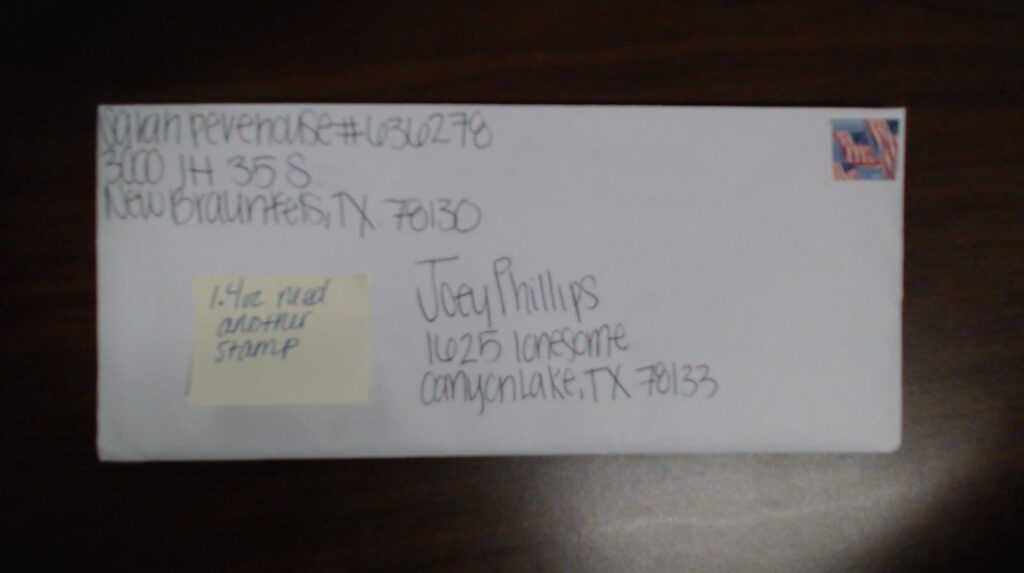 Sarah Pevehouse #636278
3000 IH 35 S
New Braunfels, TX 78130
1.4oz need
another
stamp
Joey Phillips
1625 lonesome
canyonlake, TX 78133